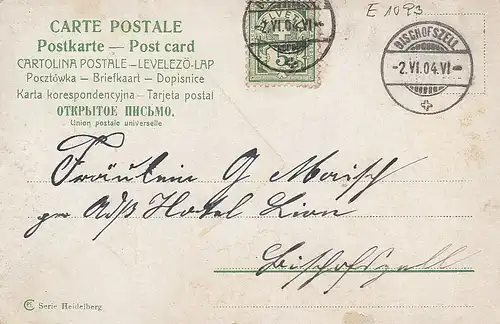 CARTE POSTALE
Postkarte — Post card
CARTOLINA POSTALE – LEVELEZÖ-LAP
Pocztówka – Briefkaart – Dopisnice
Karta korespondencyjna – Tarjeta postal
ОТКРЫТОЕ ПИСЬМО.
Union postale universelle
-2.VI.04.VI-
5
E 1093
BISCHOFSZELL
-2.VI.04.VI-
Fräulein G
Hotel Lion
Bischofszell
Serie Heidelberg